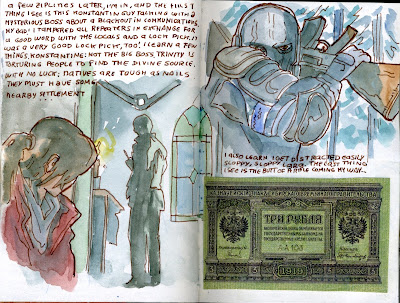 A FEW ZIPLINES LATER, I'M IN, AND THE FIRST
THING I SEE IS THIS KONSTANTIN GUY TALKING WITH A
MYSTERIOUS BOSS ABOUT A BLACKOUT IN COMMUNICATIONS.
MY BAD! I TAMPERED ALL REPEATERS IN EXCHANGE FOR
A GOOD WORD WITH THE LOCALS AND A LOCK PICK. IT
WAS A VERY GOOD LOCK PICK, TOO! I LEARN A FEW
THINGS, KONSTANTINE: NOT THE BIG BOSS, TRINITY IS
TORTURING PEOPLE TO FIND THE DIVINE SOURCE,
WITH NO LUCK; NATIVES ARE TOUGH AS NAILS
THEY MUST HAVE SOME
NEARBY SETTLEMENT
I ALSO LEARN I GET DISTRACTED EASILY
SLOPPY, SLOPPY LARA. THE LAST THING
I SEE IS THE BUTT OF A RIFLE COMING MY WAY...
3
3
ТРИ РУБЛЯ
АА 108
1919